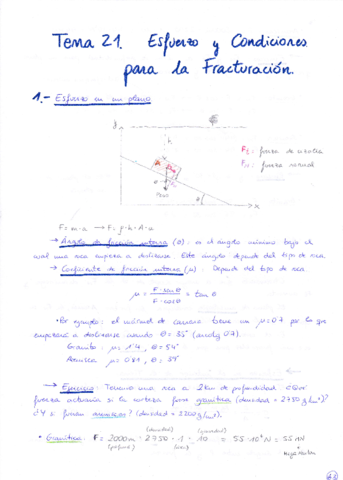 Tema 21. Esfuerzo y Condiciones
para la Fracturación.
1.- Esfuerzo en un plano
h
Fτ: fuerza de cizalla
Fn: fuerza normal
θ
x
F = m·a → F = ρ·h·A·a
→ Ángulo de fricción interna (θ): es el ángulo mínimo bajo el
cual una roca empieza a deslizarse. Este ángulo depende del tipo de roca.
→ Coeficiente de fricción interna (μ): Depende del tipo de roca.
μ = F·senθ / F·cosθ = tan θ
• Por ejemplo: el mármol de carrara tiene un μ=0'7 por lo que
empezará a deslizarse cuando θ=35° (arcotg 0'7).
Granito: μ=1'4, θ=54°
Arenisca: θ=
→ Ejercicio: Tenemos una roca a 2km de profundidad. ¿Qué
fuerza actuaría si la corteza fuese granítica (densidad = 2750 g/m³)?
¿Y si fueran areniscas? (densidad = 2200 g/m³).
(densidad) (gravedad)
• Granítica: F = 2000m · 2750 · 1 · 10 = 55·10⁶N = 55 MN
(profund) (área) Mega Newton